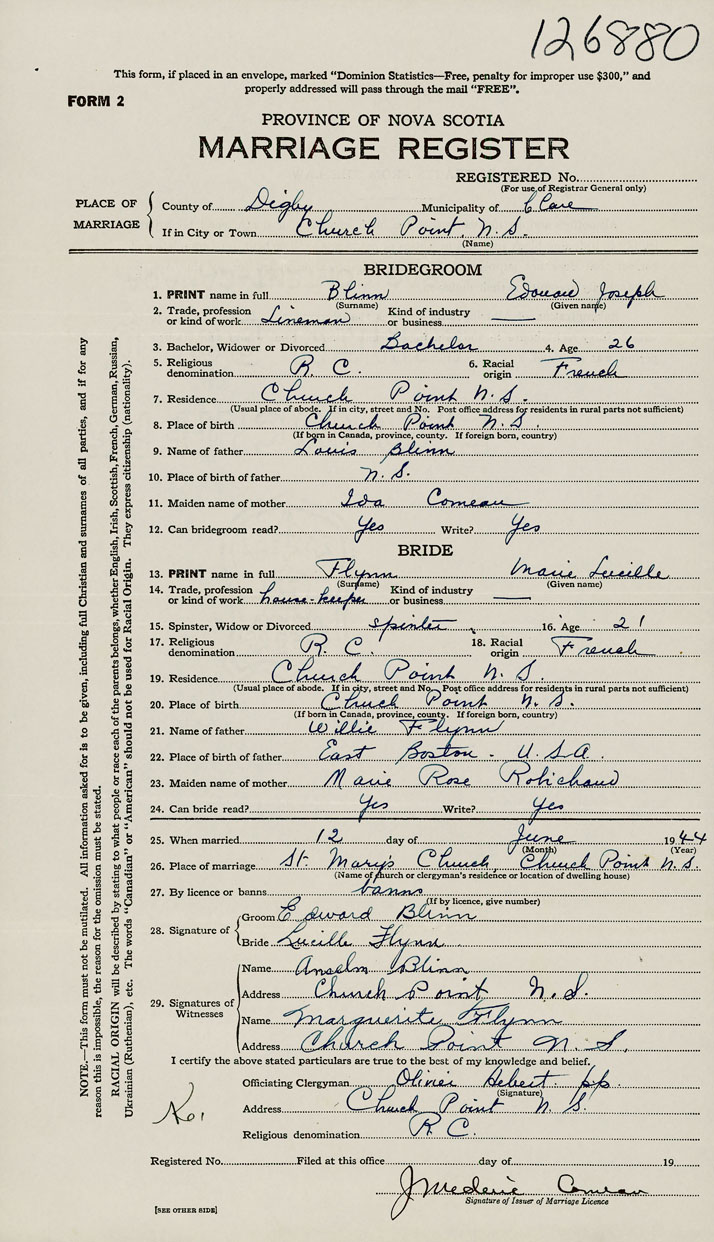 126880
This form, if placed in an envelope, marked "Dominion Statistics—Free, penalty for improper use $300," and
properly addressed will pass through the mail "FREE".
FORM 2
PROVINCE OF NOVA SCOTIA
MARRIAGE REGISTER
REGISTERED No.
(For use of Registrar General only)
PLACE OF MARRIAGE
County of Digby Municipality of Clare
If in City or Town Church Point, N.S.
(Name)
BRIDEGROOM
1. PRINT name in full Blinn Edouard Joseph
(Surname) (Given name)
2. Trade, profession or kind of work Lineman Kind of industry or business —
3. Bachelor, Widower or Divorced Bachelor 4. Age 26
5. Religious denomination R. C. 6. Racial origin French
7. Residence Church Point N.S.
(Usual place of abode. If in city, street and No. Post office address for residents in rural parts not sufficient)
8. Place of birth Church Point N.S.
(If born in Canada, province, county. If foreign born, country)
9. Name of father Louis Blinn
10. Place of birth of father N.S.
11. Maiden name of mother Ida Comeau
12. Can bridegroom read? Yes Write? Yes
BRIDE
13. PRINT name in full Flynn Marie Lucille
(Surname) (Given name)
14. Trade, profession or kind of work house-keeper Kind of industry or business —
15. Spinster, Widow or Divorced spinter 16. Age 21
17. Religious denomination R. C. 18. Racial origin French
19. Residence Church Point N.S.
(Usual place of abode. If in city, street and No. Post office address for residents in rural parts not sufficient)
20. Place of birth Church Point N.S.
(If born in Canada, province, county. If foreign born, country)
21. Name of father Willie Flynn
22. Place of birth of father East Boston - U.S.A.
23. Maiden name of mother Marie Rose Robichaud
24. Can bride read? Yes Write? Yes
25. When married 12 day of June 1944
(Month) (Year)
26. Place of marriage St. Mary's Church, Church Point N.S.
(Name of church or clergyman's residence or location of dwelling house)
27. By licence or banns banns
(If by licence, give number)
28. Signature of
Groom Edward Blinn
Bride Lucille Flynn
29. Signatures of Witnesses
Name Anselm Blinn
Address Church Point N.S.
Name Marguerite Flynn
Address Church Point N.S.
I certify the above stated particulars are true to the best of my knowledge and belief.
Officiating Clergyman Olivier Hebert p.p.
(Signature)
Address Church Point N.S.
Religious denomination R.C.
Registered No. Filed at this office day of 19
J Mederic Comeau
Signature of Issuer of Marriage Licence
[SEE OTHER SIDE]
NOTE.—This form must not be mutilated. All information asked for is to be given, including full Christian and surnames of all parties, and if for any
reason this is impossible, the reason for the omission must be stated.
RACIAL ORIGIN will be described by stating to what people or race each of the parents belongs, whether English, Irish, Scottish, French, German, Russian,
Ukrainian (Ruthenian), etc. The words "Canadian" or "American" should not be used for Racial Origin. They express citizenship (nationality).